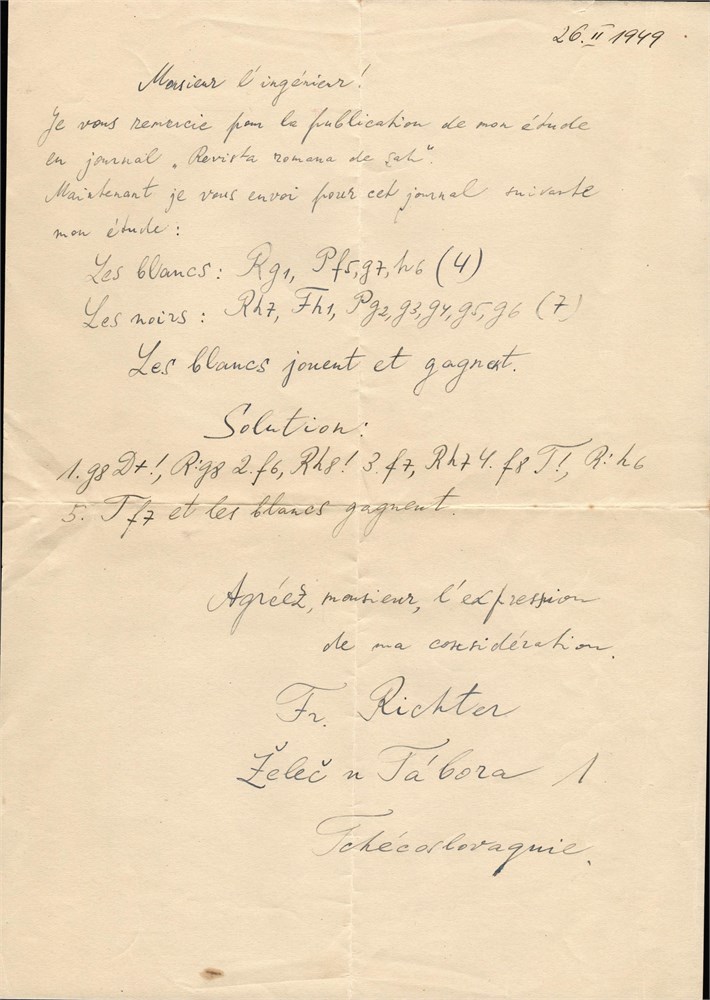 26. II 1949
Monsieur l'ingénieur!
Je vous remercie pour la publication de mon étude
en journal „Revista romana de şah".
Maintenant je vous envoi pour cet journal suivante
mon étude:
Les blancs: Rg1, Pf5,g7,h6 (4)
Les noirs: Rh7, Fh1, Pg2,g3,g4,g5,g6 (7)
Les blancs jouent et gagnent.
Solution:
1. g8 D+!, R:g8 2. f6, Rh8! 3. f7, Rh7 4. f8 T!, R:h6
5. Tf7 et les blancs gagnent.
Agréež, monsieur, l'expression
de ma considération.
Fr. Richter
Želeč u Tábora 1
Tchécoslovaquie.